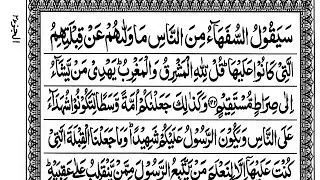 سَيَقُوۡلُ السُّفَهَآءُ مِنَ النَّاسِ مَا وَلّٰٮهُمۡ عَنۡ قِبۡلَتِهِمُ
الَّتِىۡ كَانُوۡا عَلَيۡهَا ؕ قُلۡ لِّلّٰهِ الۡمَشۡرِقُ وَالۡمَغۡرِبُ ؕ يَهۡدِىۡ مَنۡ يَّشَآءُ
اِلٰى صِرَاطٍ مُّسۡتَقِيۡمٍ ﴿۱۴۲﴾ وَكَذٰلِكَ جَعَلۡنٰكُمۡ اُمَّةً وَّسَطًا لِّتَکُوۡنُوۡا شُهَدَآءَ
عَلَى النَّاسِ وَيَكُوۡنَ الرَّسُوۡلُ عَلَيۡكُمۡ شَهِيۡدًا ؕ وَمَا جَعَلۡنَا الۡقِبۡلَةَ الَّتِىۡ
كُنۡتَ عَلَيۡهَآ اِلَّا لِنَعۡلَمَ مَنۡ يَّتَّبِعُ الرَّسُوۡلَ مِمَّنۡ يَّنۡقَلِبُ عَلٰى عَقِبَيۡهِ ؕ